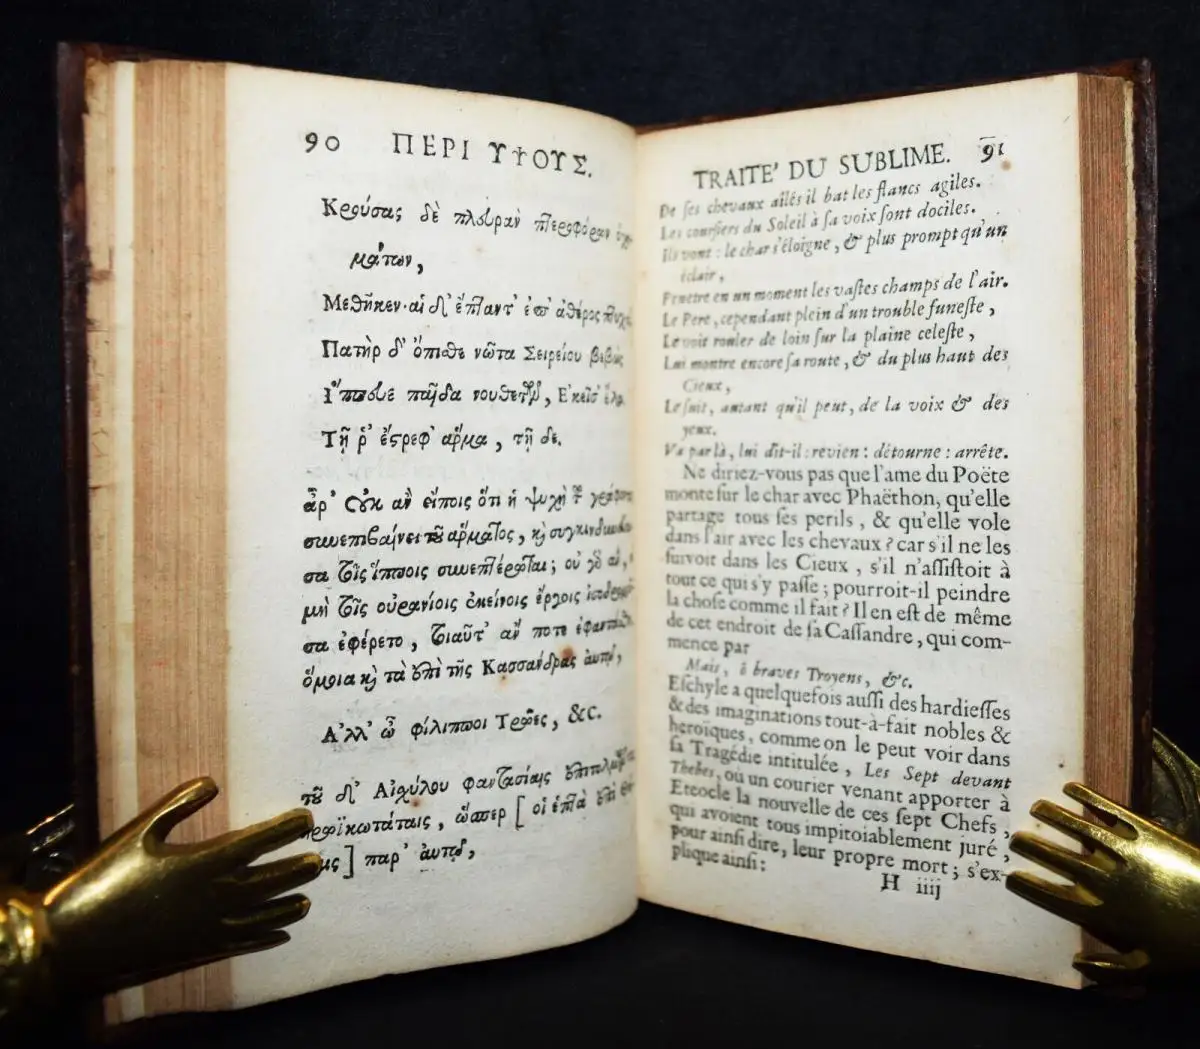 90 ΠΕΡΙ ΥΨΟΥΣ.
Κρούσας δὲ πλευρὰν πτεροφόρων
μάτων,
Μεθῆκεν· αἱ δ' ἔπταντ' ἐπ' αἰθέρος
Πατὴρ δ' ὄπισθε νῶτα Σειρείου βεβὼς
Ἵππευε παῖδα νουθετῶν, Ἐκεῖσ'
Τῇ ῥ' ἔςρεφ' ἅρμα, τῇ δε.
ἆρ' οὐκ ἂν εἴποις ὅτι ἡ ψυχὴ τ
συνεπιβαίνει τοῦ ἅρματος, κὶ
σα τοῖς ἵπποις συνεπτέρωται; οὐ γὸ ἂν,
μὴ τοῖς οὐρανίοις ἐκείνοις ἔργοις
σα ἐφέρετο, τοιαῦτ' ἄν ποτε
ὅμοια κὶ τὰ ἐπὶ τῆς Κασσάνδρας αὐτῷ,
Ἀλλ' ὦ φίλιπποι Τρῶες, &c.
τοῦ δ' Αἰχύλου φαντασίαις
, ὥσπερ [ οἱ ἑπτὰ ἐπὶ
] παρ' αὐτῷ,
TRAITE' DU SUBLIME. 91
De ses chevaux aîlés il bat les flancs agiles.
Les coursiers du Soleil à sa voix sont dociles.
Ils vont : le char s'éloigne, & plus prompt qu'un
éclair,
Penetre en un moment les vastes champs de l'air.
Le Pere, cependant plein d'un trouble funeste,
Le voit rouler de loin sur la plaine celeste,
Lui montre encore sa route, & du plus haut des
Cieux,
Le suit, autant qu'il peut, de la voix & des
yeux.
Va par là, lui dit-il : revien : détourne : arrête.
Ne diriez-vous pas que l'ame du Poëte
monte sur le char avec Phaëthon, qu'elle
partage tous ses perils, & qu'elle vole
dans l'air avec les chevaux ? car s'il ne les
suivoit dans les Cieux, s'il n'assistoit à
tout ce qui s'y passe ; pourroit-il peindre
la chose comme il fait ? Il en est de même
de cet endroit de sa Cassandre, qui com-
mence par
Mais, ô braves Troyens, &c.
Eschyle a quelquefois aussi des hardiesses
& des imaginations tout-à-fait nobles &
heroïques, comme on le peut voir dans
sa Tragédie intitulée, Les Sept devant
Thebes, où un courier venant apporter à
Eteocle la nouvelle de ces sept Chefs,
qui avoient tous impitoiablement juré,
pour ainsi dire, leur propre mort ; s'ex-
plique ainsi :
H iiij